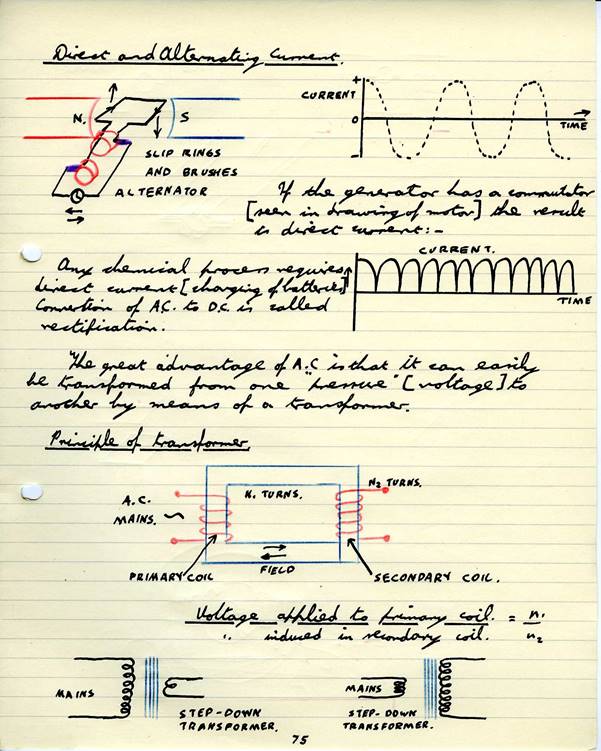 Direct and Alternating Current.
CURRENT
+
0
-
TIME
N.
S
SLIP RINGS
AND BRUSHES
ALTERNATOR
If the generator has a commutator
[seen in drawing of motor] the result
is direct current:-
CURRENT.
TIME
Any chemical process requires
direct current [charging of batteries]
Convertion of A.C. to D.C. is called
rectification.
The great advantage of A.C is that it can easily
be transformed from one "pressure" [voltage] to
another by means of a transformer.
Principle of transformer.
A.C.
MAINS. ~
N, TURNS.
N2 TURNS.
PRIMARY COIL
FIELD
SECONDARY COIL.
Voltage applied to primary coil. = n1
" induced in secondary coil. n2
MAINS
STEP-DOWN
TRANSFORMER.
MAINS
STEP-DOWN
TRANSFORMER.
75